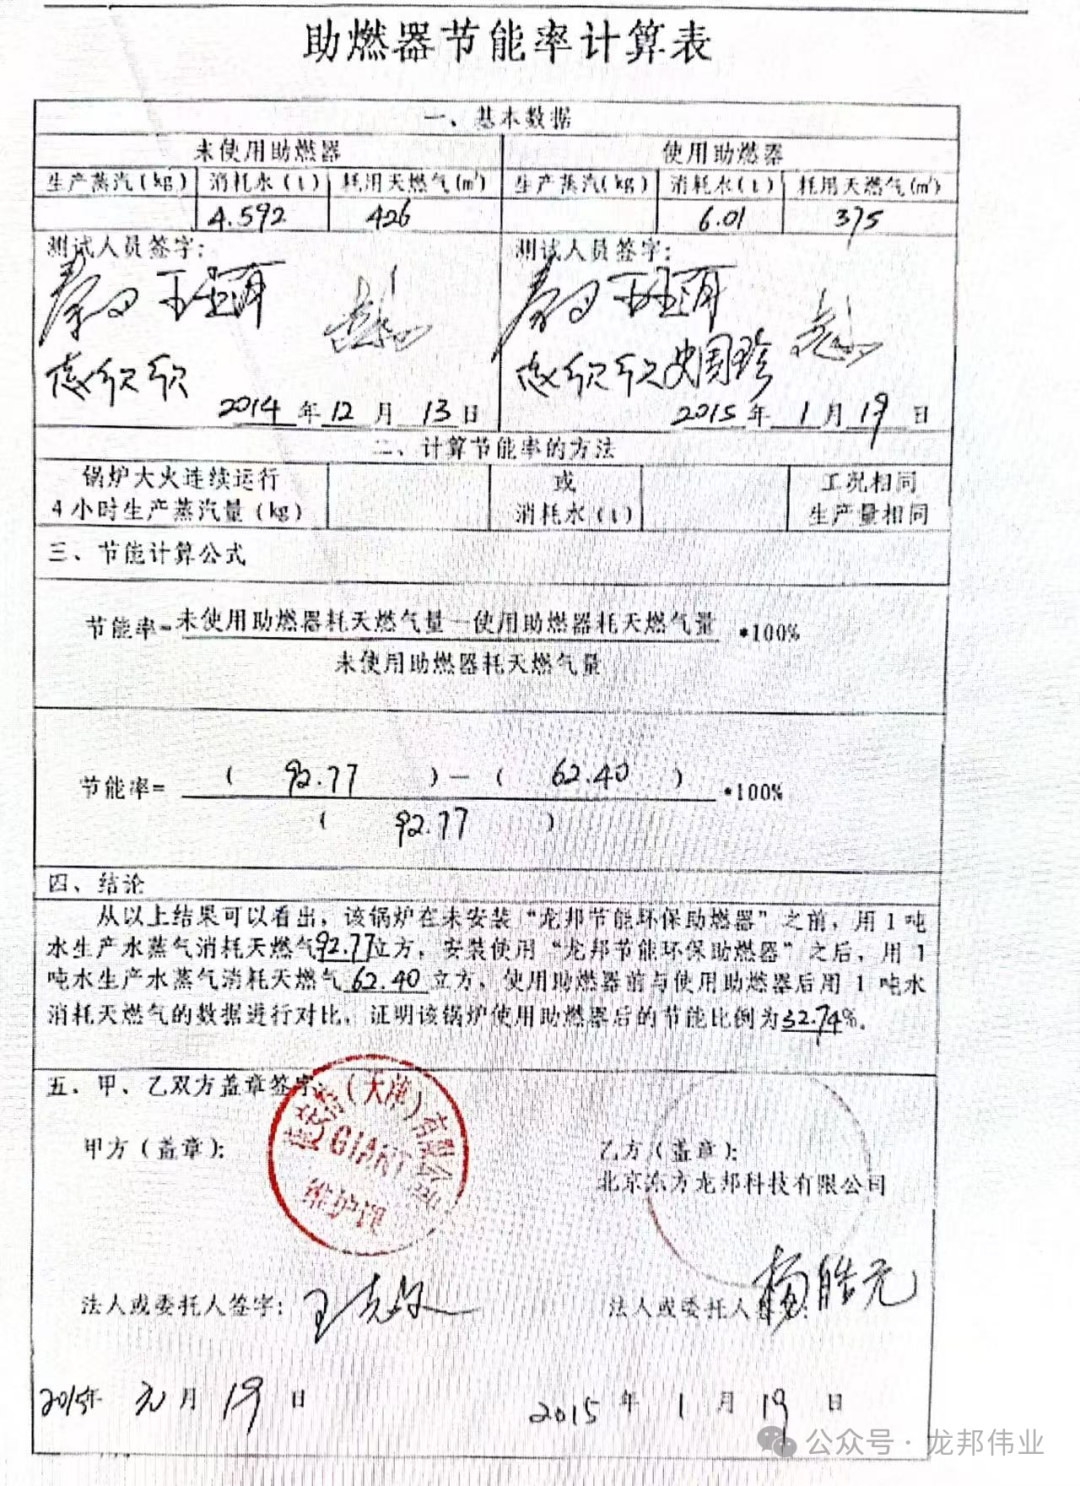 助燃器节能率计算表
一、基本数据
未使用助燃器 使用助燃器
生产蒸汽(kg) 消耗水(t) 耗用天燃气(㎥) 生产蒸汽(kg) 消耗水(t) 耗用天燃气(㎥)
4.592 426 6.01 375
测试人员签字: 测试人员签字:
2014年12月13日 2015年1月19日
二、计算节能率的方法
锅炉大火连续运行 或 工况相同
4小时生产蒸汽量(kg) 消耗水(t) 生产量相同
三、节能计算公式
节能率=未使用助燃器耗天燃气量—使用助燃器耗天燃气量 *100%
未使用助燃器耗天燃气量
节能率= ( 92.77 ) — ( 62.40 ) *100%
( 92.77 )
四、结论
从以上结果可以看出，该锅炉在未安装“龙邦节能环保助燃器”之前，用1吨
水生产水蒸气消耗天燃气92.77立方，安装使用“龙邦节能环保助燃器”之后，用1
吨水生产水蒸气消耗天燃气62.40立方，使用助燃器前与使用助燃器后用1吨水
消耗天燃气的数据进行对比，证明该锅炉使用助燃器后的节能比例为32.74%。
五、甲、乙双方盖章签字:
(天津)有限公司
GIANT
甲方(盖章): 乙方(盖章):
北京东方龙邦科技有限公司
法人或委托人签字: 法人或委托人签字: 杨皓元
2015年元月19日 2015年1月19日
公众号·龙邦伟业